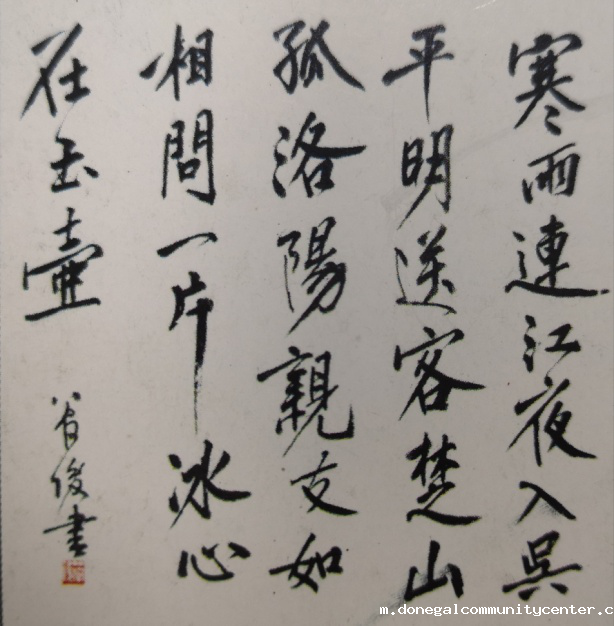 寒雨連江夜入吳
平明送客楚山
孤洛陽親友如
相問一片冰心
在玉壺
俊書
m.donegalcommunitycenter.c